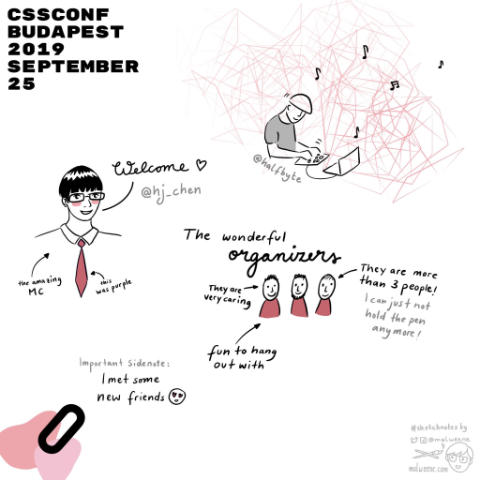 CSSCONF
BUDAPEST
2019
SEPTEMBER
25
@halfbyte
Welcome
@hj_chen
the amazing
MC
this
was purple
The wonderful
organizers
They are
very caring
They are more
than 3 people!
I can just not
hold the pen
anymore!
fun to hang
out with
Important Sidenote:
I met some
new friends
#sketchnotes by
@malweene
malweene.com